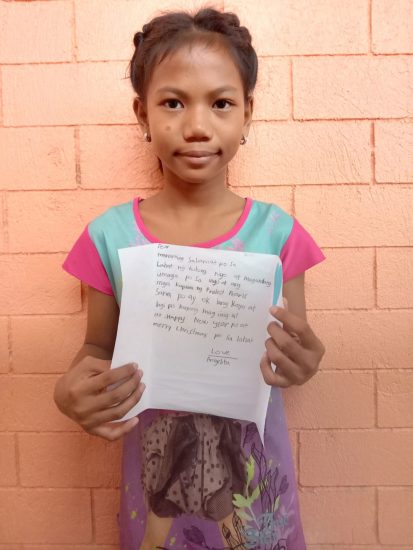 Dear
maraming Salamat po sa
Lahat ng tulong nyo at magandang
umaga po sa inyo at ang
mga kapwa ng Project Pearls
Sana po ay ok lang kayo at
lagi po kayong mag ingat
at Happy New year po at
merry Christmas po sa lahat
Love
Angelita